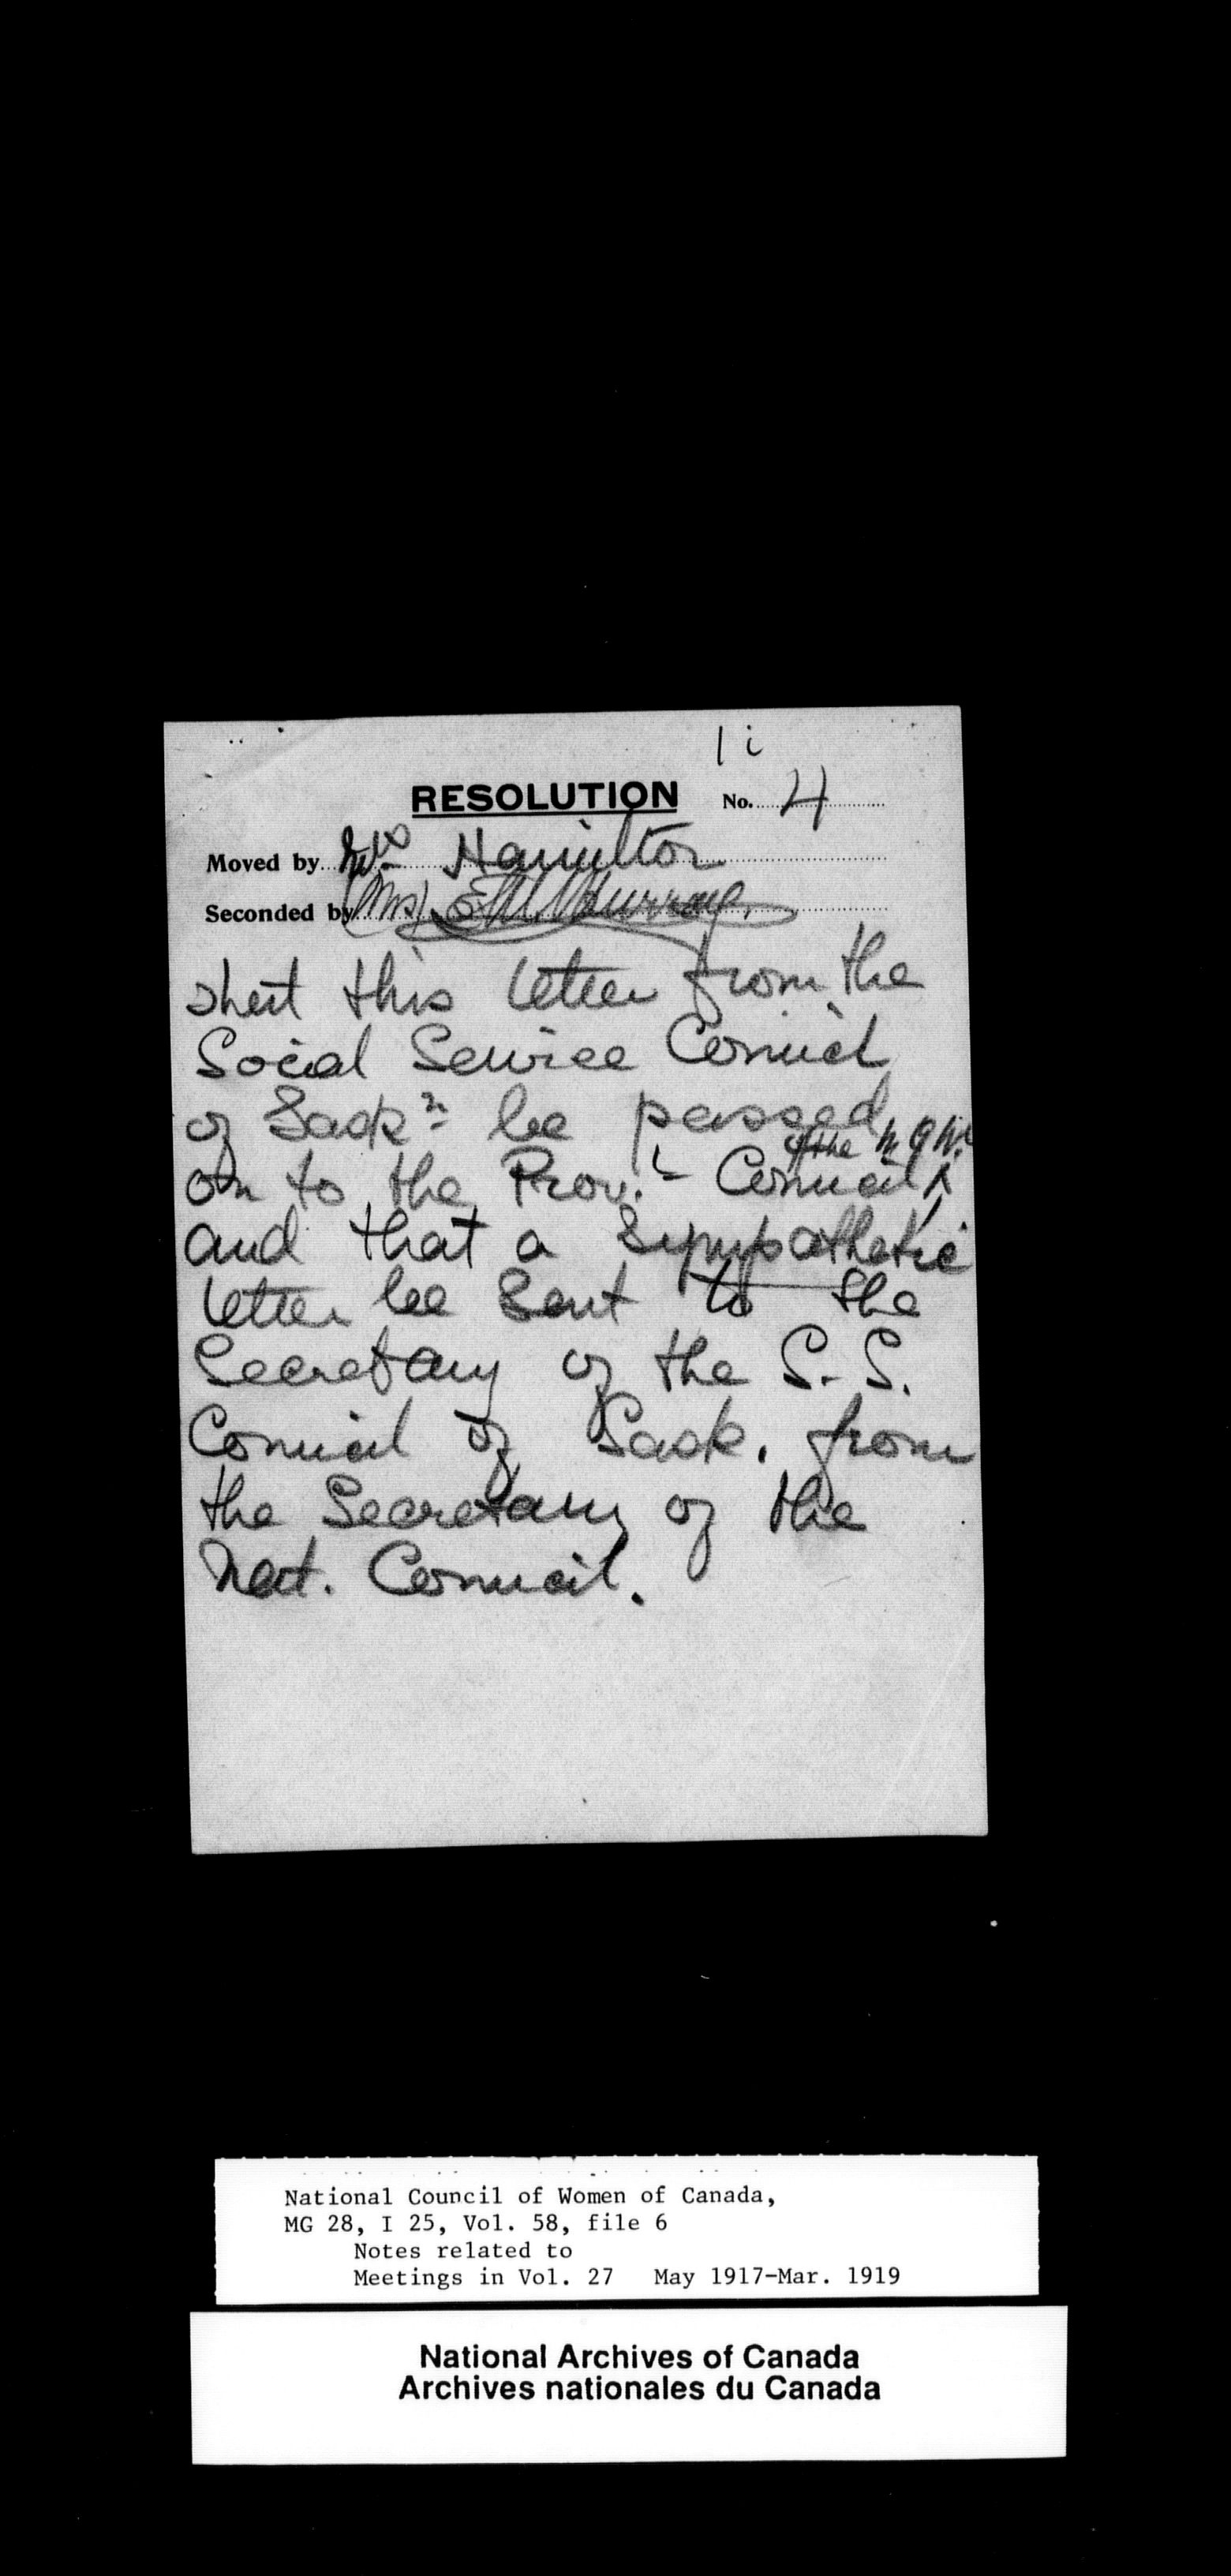 1 i
RESOLUTION No. 4
Moved by Mrs Hamilton
Seconded by (Mrs) Murray.
that this letter from the
Social Service Council
of Saskn be passed
of the
on to the Prov.l Council ^
and that a Sympathetic
letter be sent to the
Secretary of the S. S.
Council of Sask. from
the Secretary of the
Nat. Council.
National Council of Women of Canada,
MG 28, I 25, Vol. 58, file 6
Notes related to
Meetings in Vol. 27 May 1917-Mar. 1919
National Archives of Canada
Archives nationales du Canada